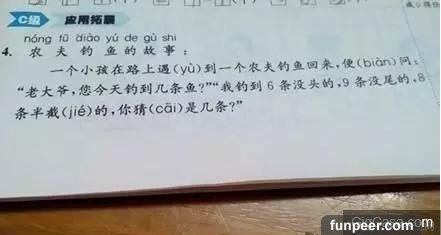 C级 应用拓展
nóng fū diào yú de gù shi
4. 农夫钓鱼的故事:
一个小孩在路上遇(yù)到一个农夫钓鱼回来,便(biàn)问:
“老大爷,您今天钓到几条鱼?”“我钓到6条没头的,9条没尾的,8
条半截(jié)的,你猜(cāi)是几条?”
GigCasa.com
funpeer.com